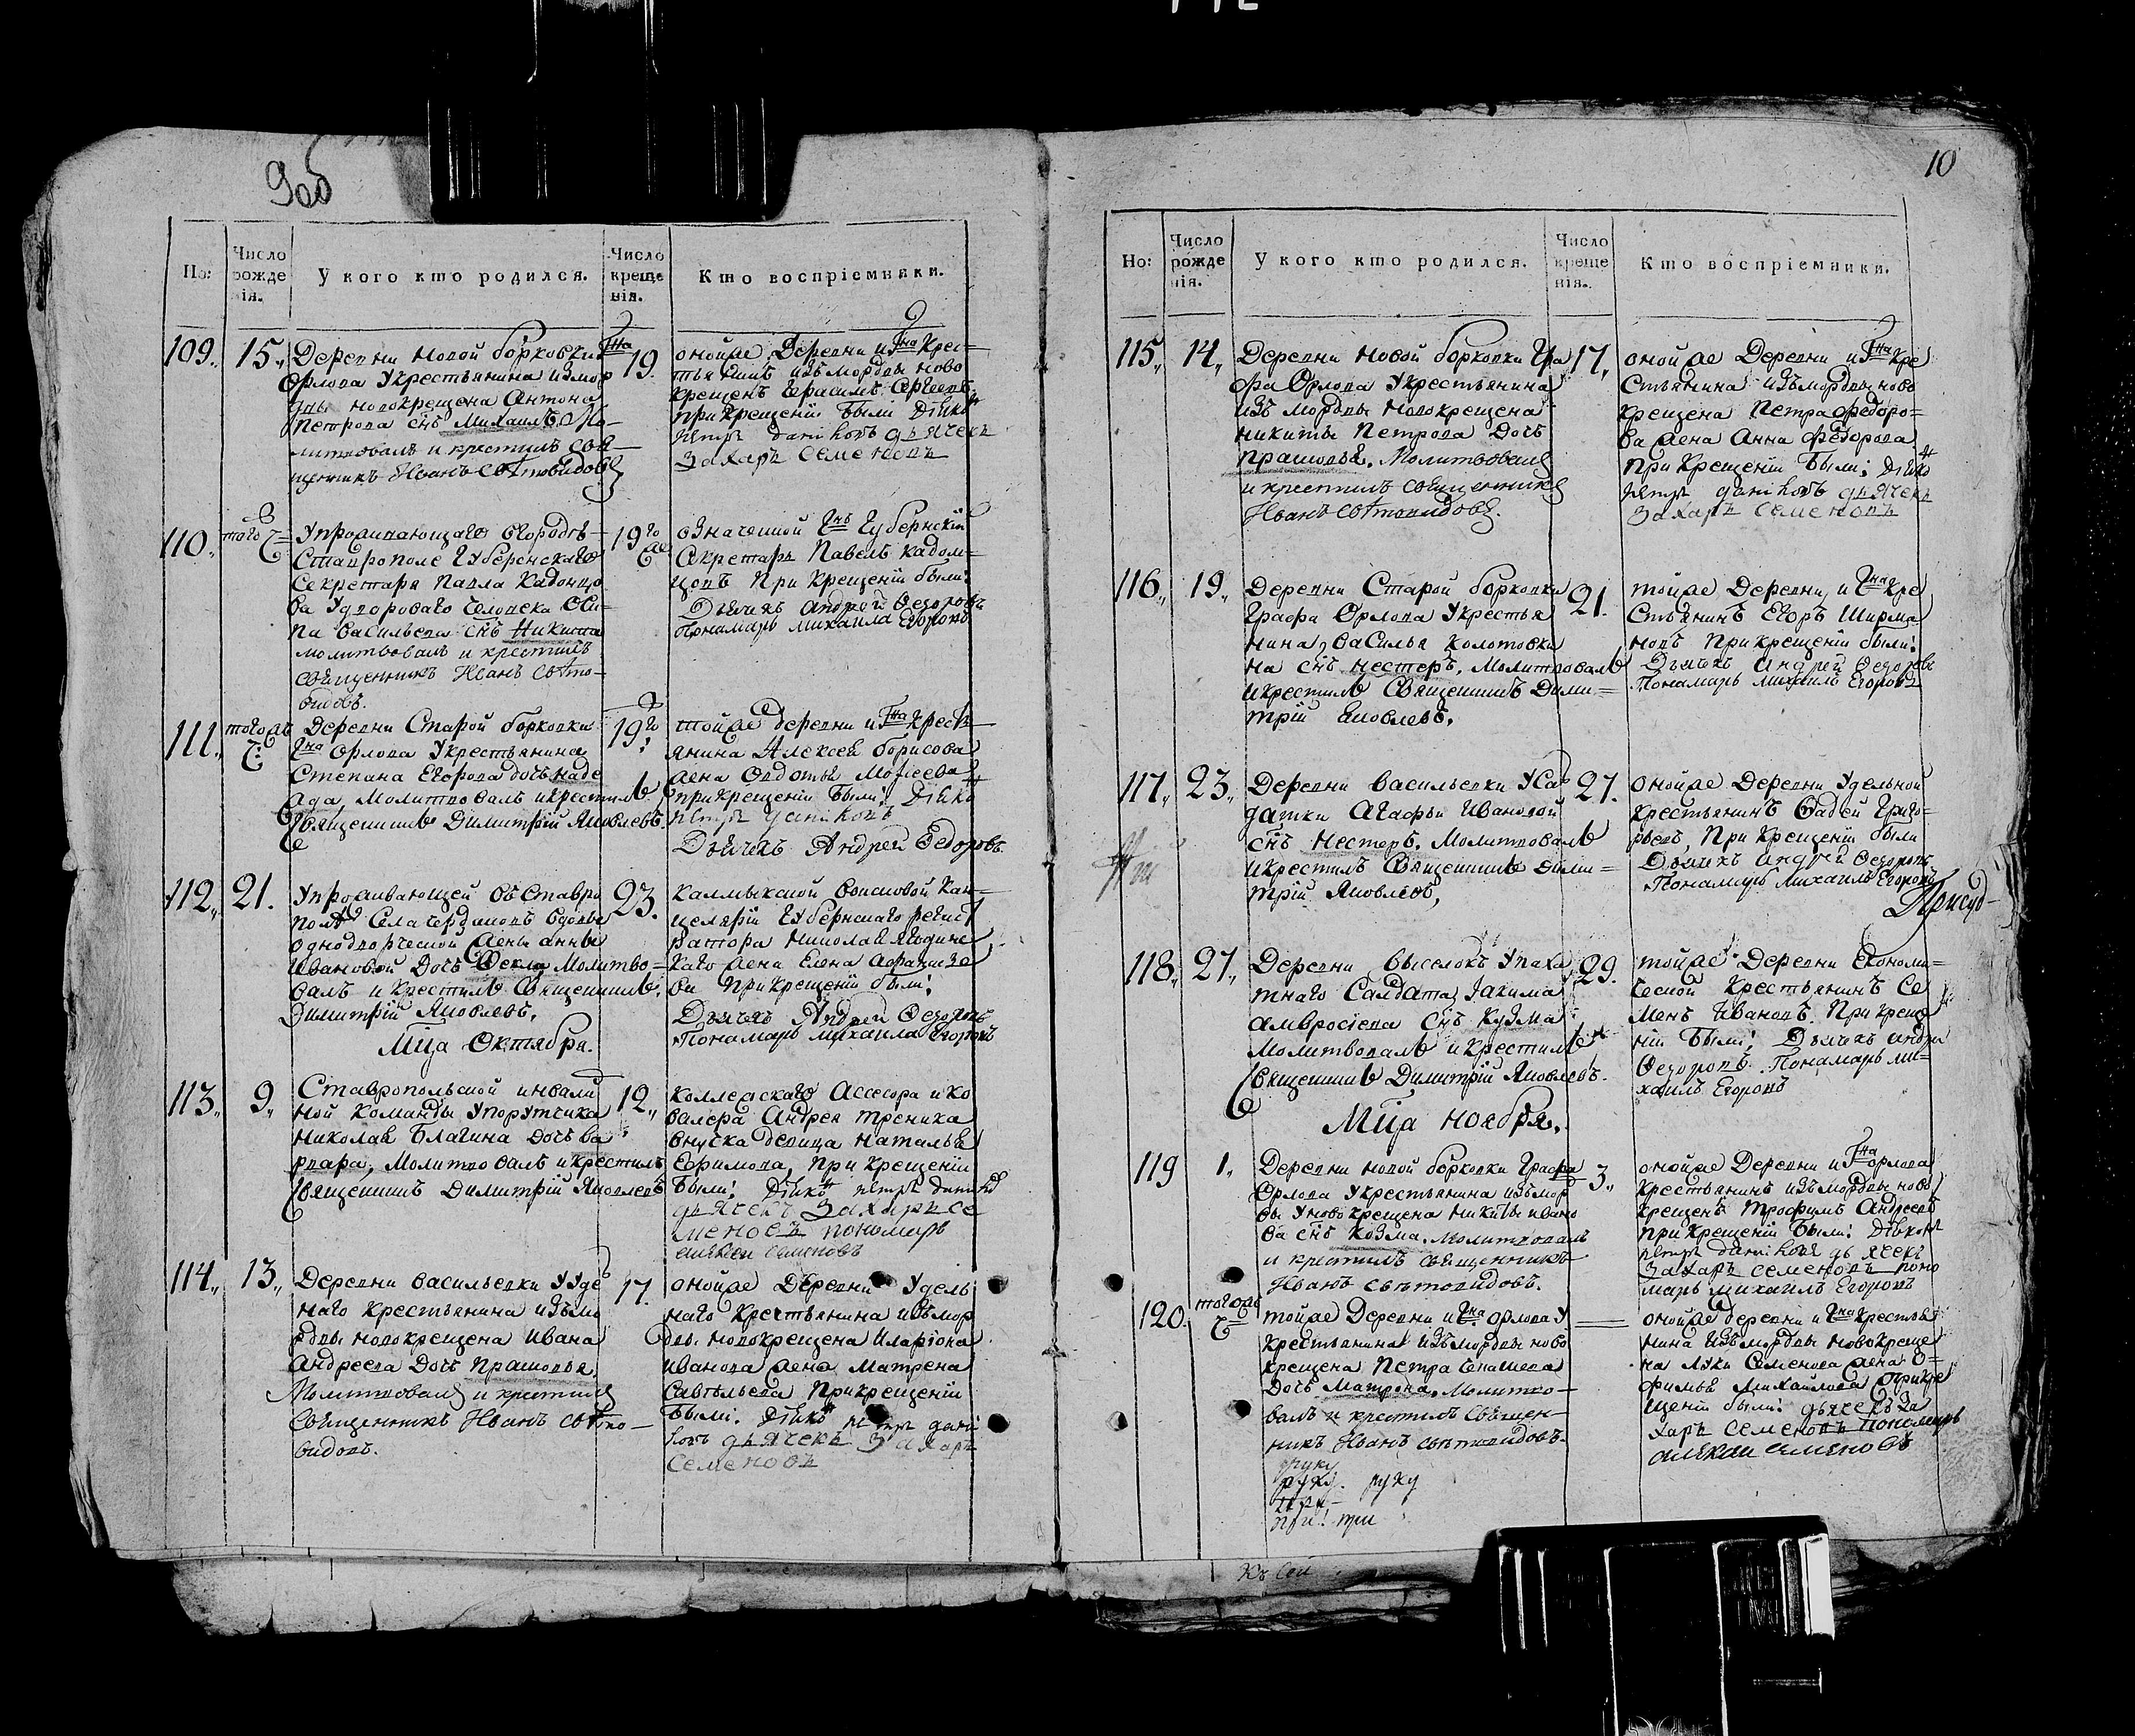 9 об
Но:
Число рожденія.
У кого кто родился.
Число крещенія.
Кто воспріемники.
109.
15.
Деревни Новой борковки Гна
Орлова Укрестьянина измор
двы новокрещена Антона
Петрова снъ Михаилъ Мо-
литвовалъ и крестилъ свя
щенникъ Иванъ Световидовъ
19.
оной же Деревни и Гна Крес-
тьянинъ изъ мордвы ново
крещенъ Герасимъ Сергеевъ
При крещеніи были Діяко
петръ данiловъ дьячекъ
Захаръ Семеновъ
110.
того ч
Упроживающаго вгородѣ
Ставрополе Губернскаго
Секретаря Павла Кадомцо
ва Удвороваго человека Оси-
па Васильева снъ Никита
молитвовалъ и крестилъ
священникъ Иванъ Свѣто-
видовъ.
19 го
означенной Гнъ Губернскій
Секретарь Павелъ кадом-
цовъ При крещеніи были:
Дьячекъ Андрей Ѳедоровъ
Пономарь михаила Егоровъ
111.
Деревни Старой борковки
Гна Орлова Укрестьянина
Степана Егорова дочь наде
жда, Молитвовалъ икрестилъ
Священникъ Димитрій Яковлевъ.
19 го
тойже деревни и Гна крест
янина Алексея борисова
жена Овдотья Мофеева
прикрещеніи были: Дiяко
петръ данiловъ
Дьячекъ Андрей Ѳедоровъ
112.
21.
Упроживающей въ Ставро
поле Села
однодворческой жены анны
Ивановой Дочь Ѳекла Молитво-
валъ и крестилъ Священникъ
Димитрій Яковлевъ.
23.
Калмыкской Воисковой Кан-
целяріи Губернскаго регист
ратора Николая
каго жена Елена Афанасье
ва При крещеніи были:
Дьячекъ Андрей Ѳедоровъ
Пономарь михаила Егоровъ
Мца Октября.
113.
9.
Ставропольской инвали
ной команды Упорутчика
Николая Благина Дочь ва
рвара, Молитвовалъ икрестилъ
Священникъ Димитрій Яковлевъ
12.
Коллежскаго Ассесора и ко
валера Андрея
внучка девица Наталья
Ефимова, При крещеніи
были: Дiяко петръ данiло
дьячекъ Захаръ Се
меновъ пономарь
алѣксеи семеновъ
114.
13.
Деревни васильевки Ууде
наго крестьянина изъмо
рдвы новокрещена ивана
андреева Дочь Прасковья,
Молитвовалъ и крестилъ
Священникъ Иванъ свѣто-
видовъ.
17.
оной же Деревни Удель
наго крестьянина изъ мор
двы новокрещена Иларіона
Иванова жена Матрена
Савельева Прикрещеніи
Были: Дiяко петръ данi
ловъ дьячекъ Захаръ
Семеновъ
10
Но:
Число рожденія.
У кого кто родился.
Число крещенія.
Кто воспріемники.
115.
14.
Деревни Новой борковки Гра
фа Орлова Укрестьянина
изъ мордвы новокрещена
никиты Петрова Дочь
Прасковья. Молитвовалъ
и крестилъ священникъ
Иванъ Свѣтовидовъ.
17.
оной же Деревни и Гна кре
стьянина изъмордвы ново
крещена Петра федоро-
ва жена Анна Федорова
При Крещеніи Были: Діяко
петръ данiловъ дьячекъ
Захаръ Семеновъ
116.
19.
Деревни Старой борковки
Графа Орлова Укрестья
нина василья Колотовки
на снъ нестеръ. Молитвовалъ
икрестилъ Священникъ Дими-
трій Яковлевъ.
21.
тойже Деревни, и Гна кре
стьянинъ Егоръ Ширма
новъ При крещеніи были:
Дьячекъ Андрей Ѳедоровъ
Пономарь Михаилъ Егоровъ
117.
23.
Деревни Васильевки Усал
датки Агафьи Ивановой
снъ Нестеръ. Молитвовалъ
икрестилъ Священникъ Дими-
трій Яковлевъ,
27.
оной же Деревни Удельной
крестьянинъ Фадей Григо-
рьевъ, При крещеніи были
Дьячекъ Андрей Ѳедоровъ
Пономарь Михаилъ Егоровъ
118.
27.
Деревни выселокъ Упаха
тнаго Салдата Іакима
амвросіева снъ Кузма
Молитвовалъ икрестилъ
Священникъ Димитрій Яковлевъ.
29.
тойже Деревни Економи-
ческой крестьянинъ Се
менъ Ивановъ. При креще
ніи были: Дьячекъ андре
Ѳедоровъ. Пономарь ми-
хаилъ Егоровъ
Мца ноября.
119
1.
Деревни новой борковки Графа
Орлова Укрестьянина изъмор
вы Уновокрещена никиты ивано
ва снъ Козма. Молитвовалъ
и крестилъ священникъ
Иванъ свѣтовидовъ.
3.
оной же Деревни и Гна орлова
крестьянинъ изъ мордвы ново
крещенъ Трофимъ Андреевъ
при крещеніи Были: Дiякон
петръ данiловъ дьячекъ
Захаръ семеновъ поно
марь михаилъ Егоровъ
120.
тогожъ ч
тойже Деревни и Гна орлова У
крестьянина изъмордвы ново
крещена Петра
Дочь Матрона. Молитво-
валъ и крестилъ Священ-
никъ Иванъ свѣтовидовъ.
руку
руку. руку
при! при
оной же деревни и Гна крестья
нина изъ мордвы новокреще
на Луки Семенова жена О-
фимья Михайлова Прикре
щеніи были: дьячекъ За
харъ Семеновъ Пономарь
алѣксеи семеновъ